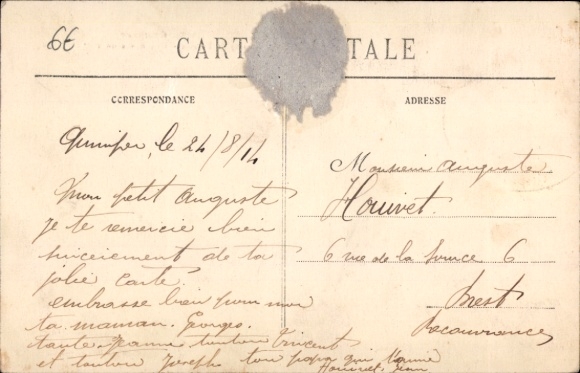 6€
CARTE POSTALE
CORRESPONDANCE
ADRESSE
Quimper, le 24/8/14
Mon petit Auguste
je te remercie bien
sincèrement de ta
jolie carte.
embrasse bien pour moi
ta maman. Georges.
tante Jeanne tonton Vincent
et tonton Joseph ton papa qui t'aime
Houivet, Jean
Monsieur Auguste
Houivet.
6 rue de la Source 6
Brest
Recouvrance